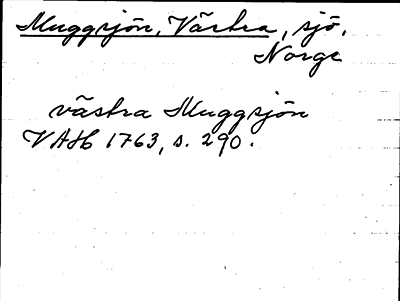 Muggsjön, Västra, sjö,
Norge
västra Muggsjön
VAH 1763, s. 290.